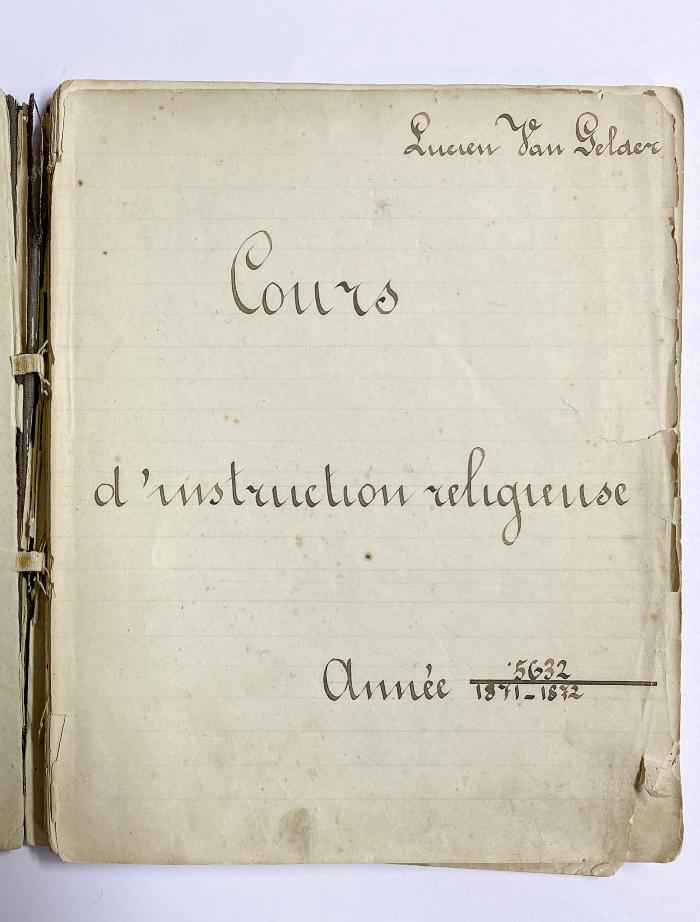 Lucien Van Gelder
Cours
d'instruction religieuse
Année 5632
1871-1872